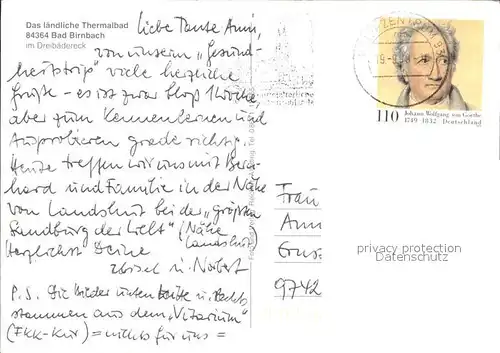 Das ländliche Thermalbad
84364 Bad Birnbach
im Dreibädereck
Liebe Tante Anni,
von unserm „Gesund-
heitstrip" viele herzliche
Grüße - es ist zwar bloß 1 Woche,
aber zum Kennenlernen und
Ausprobieren grade richtig.
Heute treffen wir uns mit Bern-
hard und Familie in der Nähe
von Landshut bei der „größten
Sandburg der Welt" (Nähe
Landshut)
Herzlichst Deine
u. Norbert
P.S. Die Bilder unten Mitte u. rechts
stammen aus dem „Vitarium"
(FKK-Kur) = nichts für uns =
110
Johann Wolfgang von Goethe
1749-1832 Deutschland
Frau
Ann
9742
privacy protection
Datenschutz